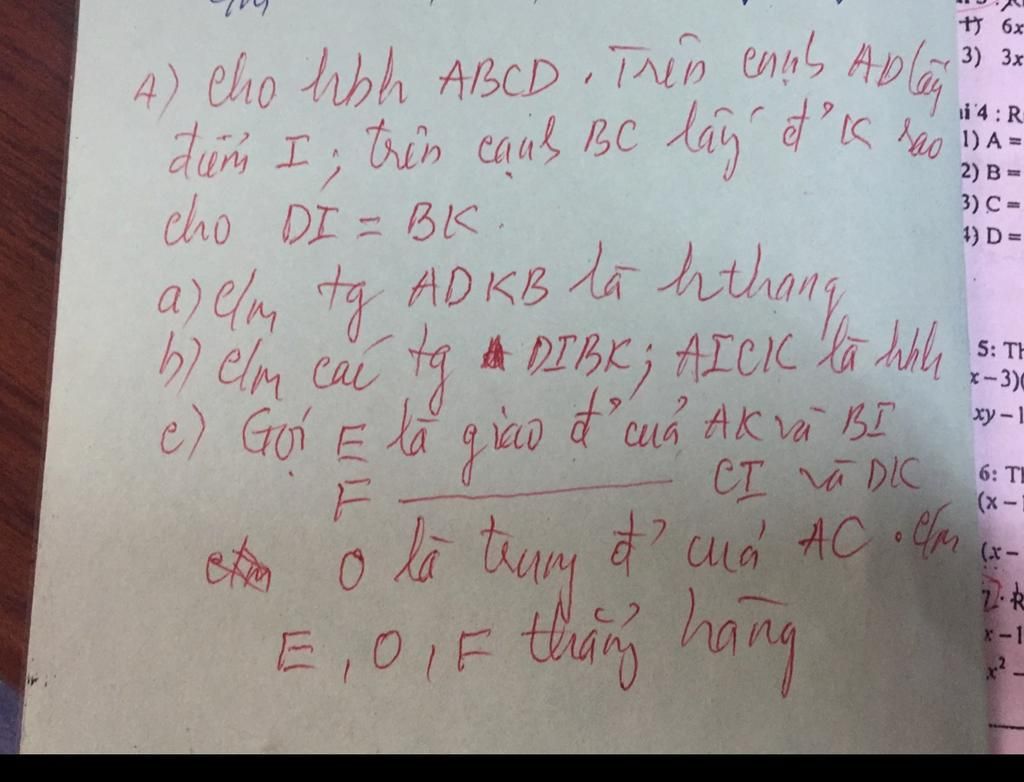 4) Cho hbh ABCD. Trên cạnh AD lấy
điểm I; trên cạnh BC lấy đ' K sao
cho DI = BK.
a) c/m tg ADKB là hthang
b) c/m các tg DIBK; AICK là hbh
c) Gọi E là giao đ' của AK và BI
F ———— CI và DK
O là trung đ' của AC. c/m
E, O, F thẳng hàng
1) 6x
3) 3x
ài 4 : R
1) A =
2) B =
3) C =
4) D =
5: Th
x – 3)(
xy – 1
6: Th
(x –
(x –
x – 1
x² –